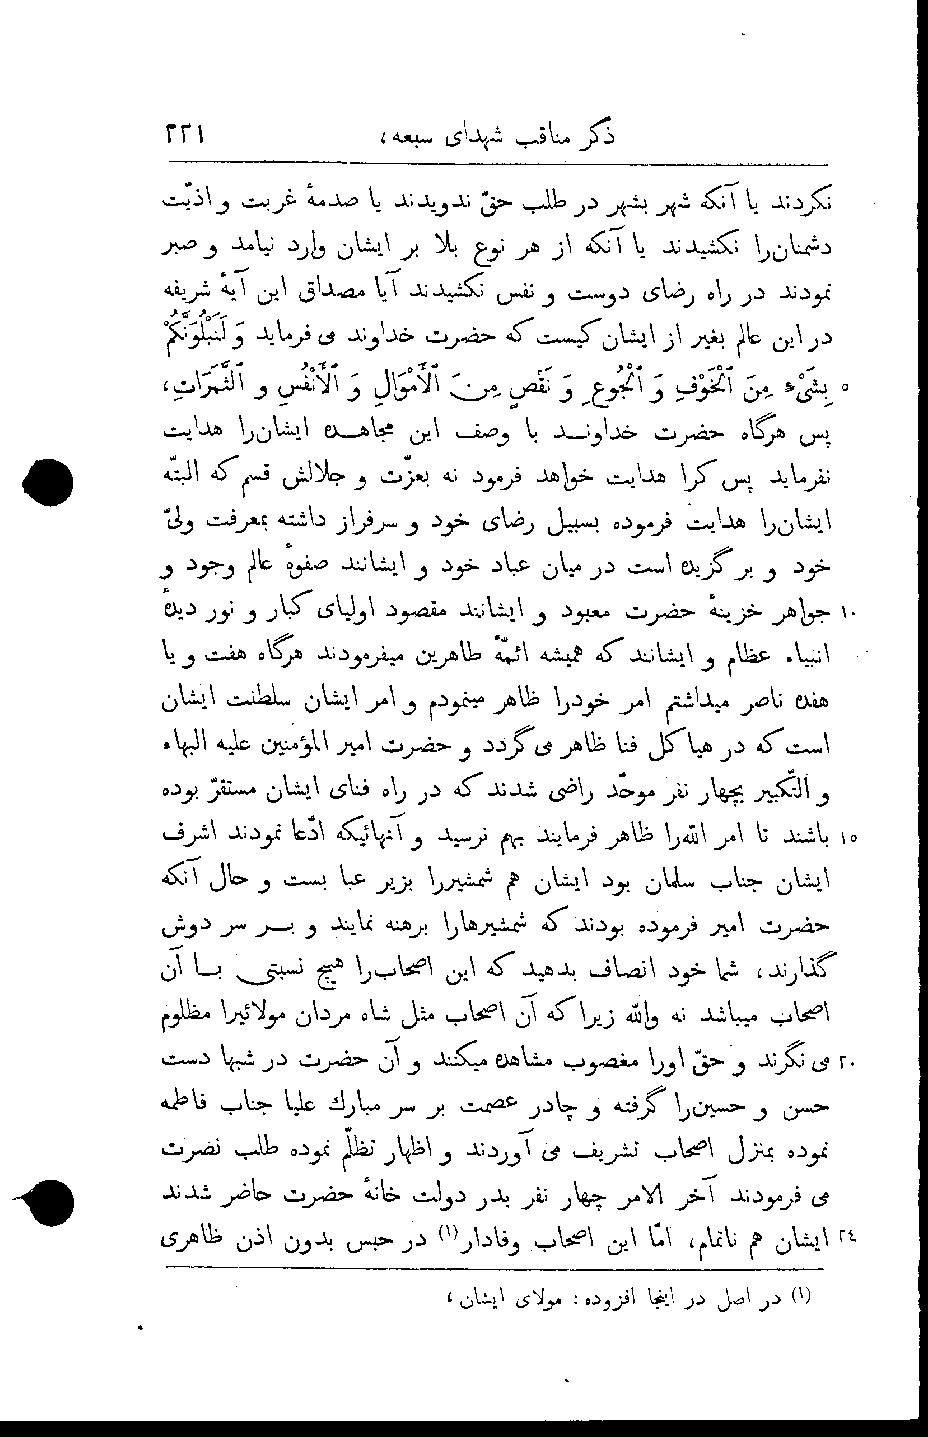 ذکر مناقب شهدای سبعه، ٢٢١
نکردند یا آنکه شهر بشهر در طلب حقّ ندویدند یا صدمهٔ غربت و اذیّت
دشمنان‌را نکشیدند یا آنکه از هر نوع بلا بر ایشان وارد نیامد و صبر
نمودند در راه رضای دوست و نفس نکشیدند آیا مصداق این آیهٔ شریفه
در این عالم بغیر از ایشان کیست که حضرت خداوند می فرماید وَ لَنَبْلُوَنَّکُمْ
٥ بِشَیْءٍ مِنَ ٱلْخَوْفِ وَ ٱلْجُوعِ وَ نَقْصٍ مِنَ ٱلْأَمْوَالِ وَ ٱلْأَنْفُسِ و ٱلثَّمَرَاتِ،
پس هرگاه حضرت خداوند با وصف این مجاهده ایشان‌را هدایت
نفرماید پس کرا هدایت خواهد فرمود نه بعزّت و جلالش قسم که البتّه
ایشان‌را هدایت فرموده بسبیل رضای خود و سرفراز داشته بمعرفت ولیّ
خود و بر گزیده است در میان عباد خود و ایشانند صفوهٔ عالم وجود و
١٠ جواهر خزینهٔ حضرت معبود و ایشانند مقصود اولیای کبار و نور دیدهٔ
انبیاء عظام و ایشانند که همیشه ائمّهٔ طاهرین میفرمودند هرگاه هفت و یا
هفده ناصر میداشتم امر خودرا ظاهر مینمودم و امر ایشان سلطنت ایشان
است که در هیاکل فنا ظاهر می گردد و حضرت امیر المؤمنین علیه البهاء
و التّکبیر بچهار نفر موحّد راضی شدند که در راه فنای ایشان مستقرّ بوده
١٥ باشند تا امر الله‌را ظاهر فرمایند بهم نرسید و آنهائیکه ادّعا نمودند اشرف
ایشان جناب سلمان بود ایشان هم شمشیررا بزیر عبا بست و حال آنکه
حضرت امیر فرموده بودند که شمشیرهارا برهنه نمایند و بر سر دوش
گذارند، شما خود انصاف بدهید که این اصحاب‌را هیچ نسبتی با آن
اصحاب میباشد نه والله زیرا که آن اصحاب مثل شاه مردان مولائیرا مظلوم
٢٠ می نگرند و حقّ اورا مغصوب مشاهده میکنند و آن حضرت در شبها دست
حسن و حسین‌را گرفته و چادر عصمت بر سر مبارك علیا جناب فاطمه
نموده بمنزل اصحاب تشریف می آوردند و اظهار تظلّم نموده طلب نصرت
می فرمودند آخر الامر چهار نفر بدر دولت خانهٔ حضرت حاضر شدند
٢٤ ایشان هم ناتمام، امّا این اصحاب وفادار(١) در حبس بدون اذن ظاهری
(١) در اصل در اینجا افزوده : مولای ایشان،